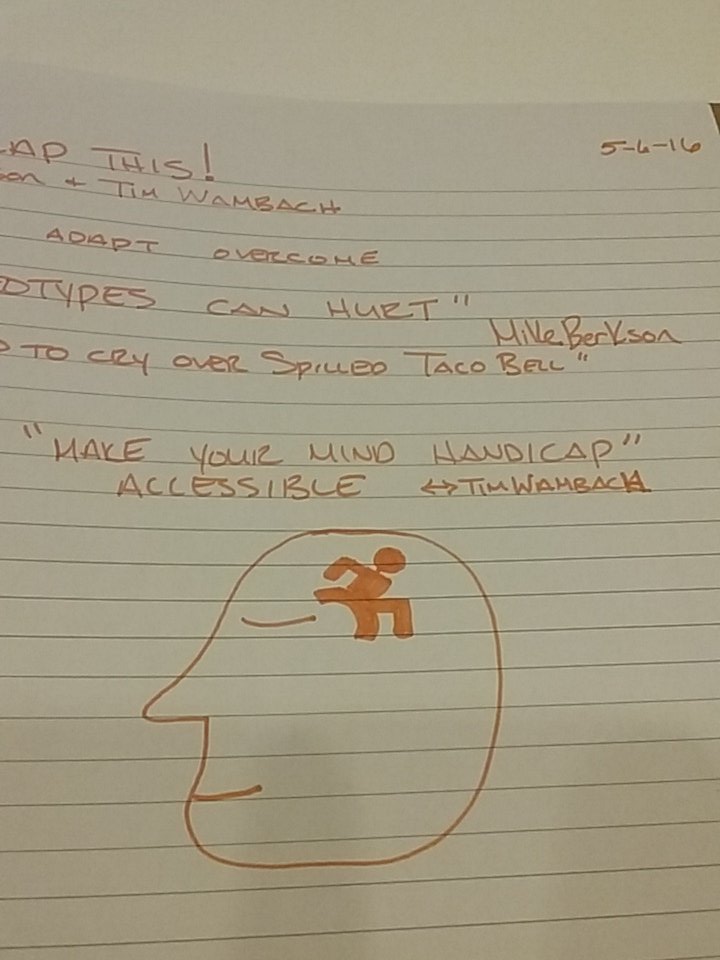 5-6-16
CAP THIS!
son + TIM WAMBACH
ADAPT OVERCOME
OTYPES CAN HURT"
Mike Berkson
D TO CRY OVER SPILLED TACO BELL"
"MAKE YOUR MIND HANDICAP"
ACCESSIBLE ↔ TIM WAMBACH